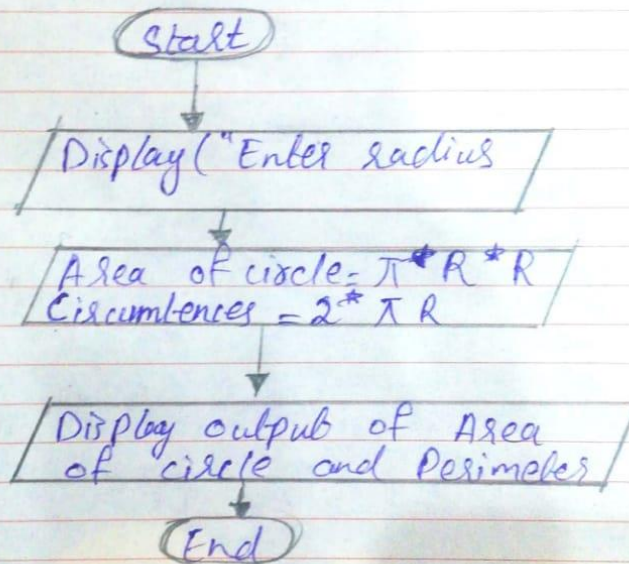 Start
Display("Enter radius
Area of circle = π * R * R
Circumfences = 2 * π R
Display output of Area
of circle and Perimeter
End